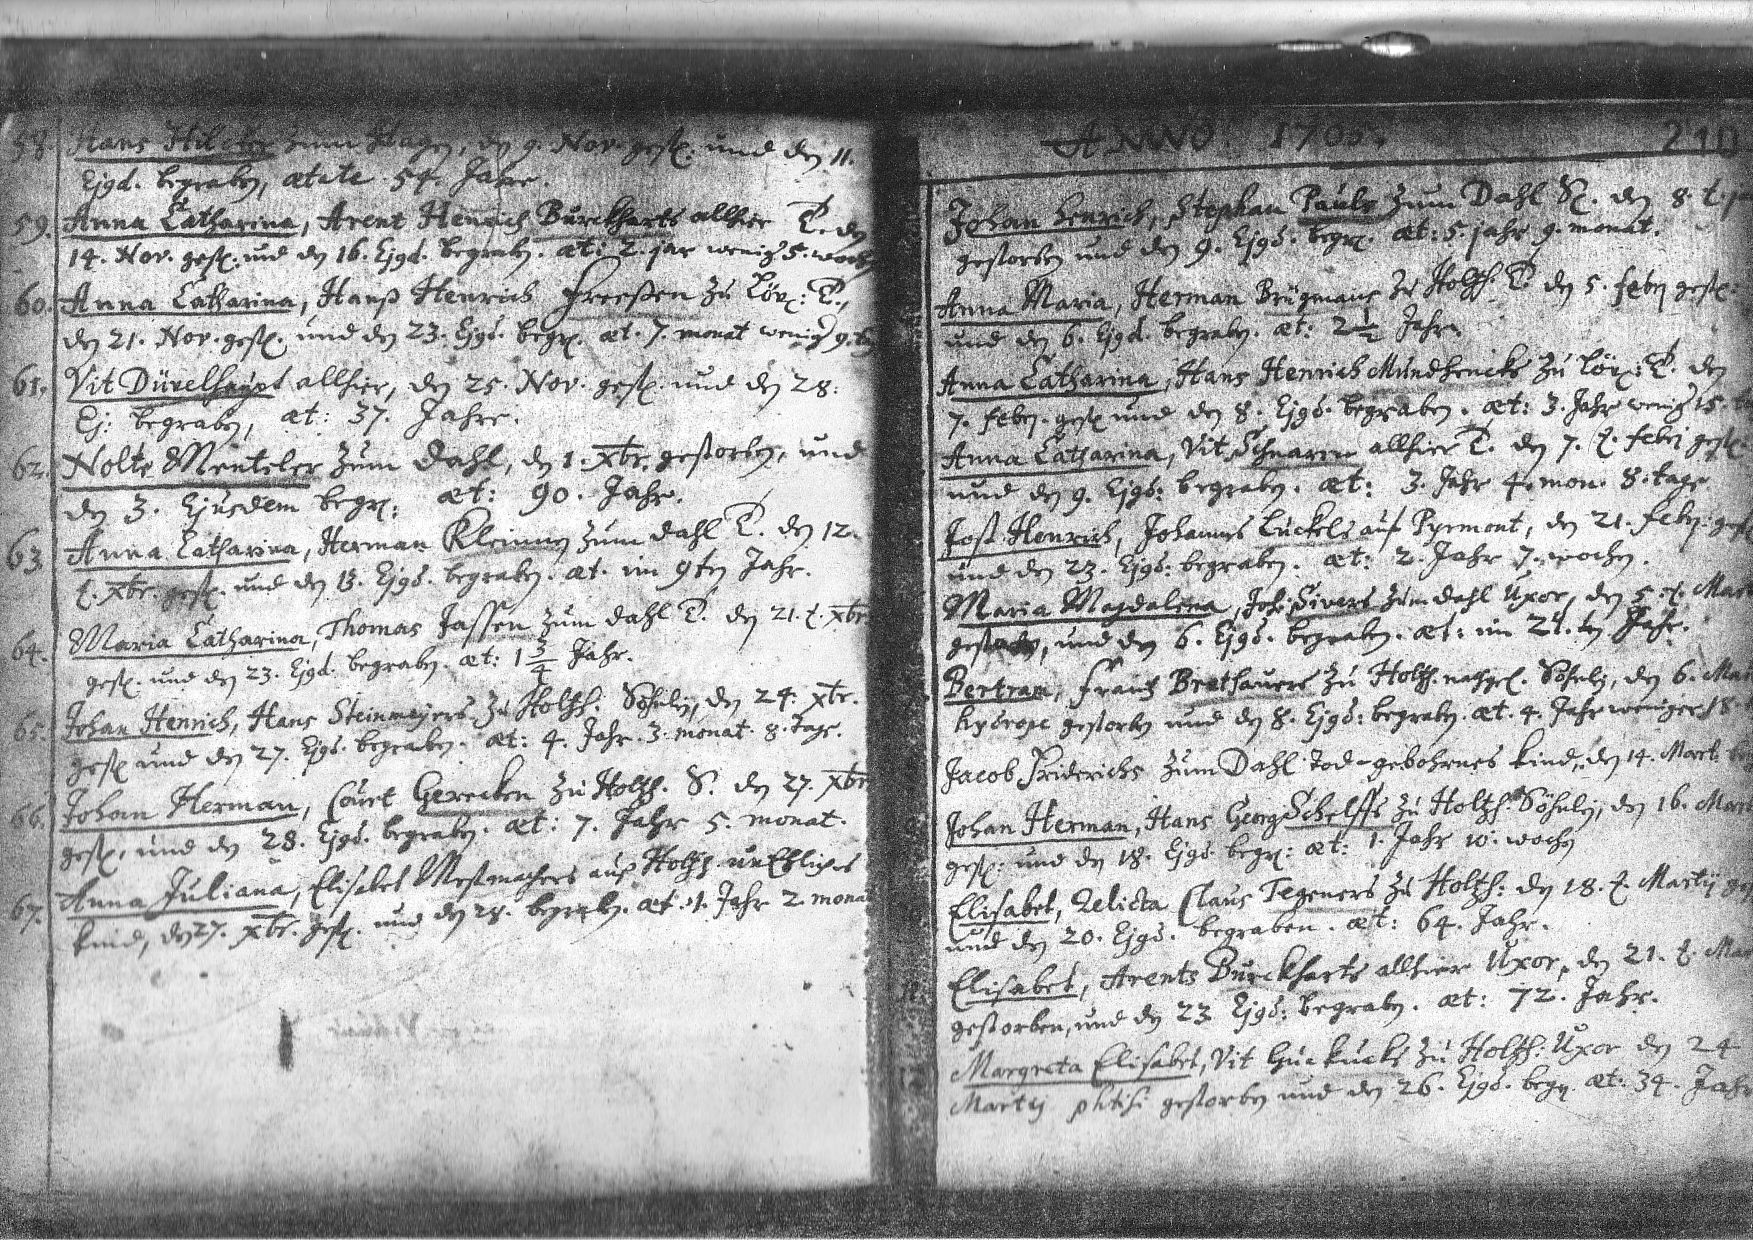 58. Hans Hilcker zum Hagen, den 9. Nov. gest. und den 11.
Ejgd. begraben, ætate 54. Jahre.
59. Anna Catharina, Arent Henrich Burckharts allhier T. den
14. Nov. gest. und den 16. Ejgd. begraben. æt: 2. jar wenig 5. woch
60. Anna Catharina, Hanß Henrich Freeßen zu Löw: T.,
den 21. Nov. gest. und den 23. Ejgd. begr. æt. 7. monat wenig 9. tag
61. Vit Düvelhaupt allhier, den 25. Nov. gest. und den 28.
Ej: begraben, æt: 37. Jahre.
62. Nolte Menteler zum Dahl, den 1. xbr. gestorben, und
den 3. Ejusdem begr: æt: 90. Jahr.
63. Anna Catharina, Herman Kleinen zum Dahl T. den 12.
t. xbr. gest. und den 13. Ejgd. begraben. æt. im 9ten Jahr.
64. Maria Catharina, Thomas Jassen zum Dahl T. den 21. t. xbr
gest. und den 23. Ejgd. begraben. æt: 1 3/4 Jahr.
65. Johan Henrich, Hans Steinmeyers zu Holtzh: Söhnlein, den 24. xbr.
gest und den 27. Ejgd. begraben. æt: 4. Jahr. 3. monat. 8. tage.
66. Johan Herman, Court Gerecken zu Holtzh. S. den 27. xbr
gest, und den 28. Ejgd. begraben. æt: 7. Jahr 5. monat.
67. Anna Juliana, Elisabet Mestmachers auß Holtzh unEhliches
kind, den 27. xbr. gest. und den 28. begraben. æt. 1. Jahr 2. mona
ANNO 1705. 210
Johan Henrich, Stephan Pauls zum Dahl S. den 8. t.
gestorben und den 9. Ejgd. begr. æt: 5. jahr 9. monat.
Anna Maria, Herman Brügmans zu Holtzh. T. den 5. febr gest:
und den 6. Ejgd. begraben. æt: 2 1/2 Jahr.
Anna Catharina, Hans Henrich Mundhencks zu Löw: T. den
7. febr. gest und den 8. Ejgd. begraben. æt: 3. Jahr wenig 15.
Anna Catharina, Vit Schnarm allhier T. den 7. t. febr gest.
und den 9. Ejgd: begraben. æt: 3. Jahr 4. mon. 8. tage
Jost Henrich, Johannes Luckels auf Pyrmont, den 21. febr: gest
und den 23. Ejgd: begraben. æt: 2. Jahr 7. wochen.
Maria Magdalena, Joh: Sivers zum Dahl Uxor, den 5. t. Mart
gestorben, und den 6. Ejgd. begraben. æt: im 21.ten Jahr.
Bertram, Frantz Brathauers zu Holtzh. nachgel. Söhnlein, den 6. Mart
hydrope gestorben und den 8. Ejgd: begraben. æt. 4. Jahr weniger 18.
Jacob Friderichs zum Dahl Tod-gebohrnes kind, den 14. Mart.
Johan Herman, Hans Georg Schelffs zu Holtzh. Söhnlein, den 16. Mart
gest: und den 18. Ejgd. begr: æt: 1. Jahr 10. wochen
Elisabet, Relicta Claus Tegeners zu Holtzh: den 18. t. Martij
und den 20. Ejgd. begraben. æt: 64. Jahr.
Elisabet, Arents Burckharts allhier Uxor, den 21. t. Mar
gestorben, und den 23 Ejgd: begraben. æt: 72. Jahr.
Margreta Elisabet, Vit Guckucks zu Holtzh: Uxor den 24
Martij phtisi gestorben und den 26. Ejgd. begr. æt: 34. Jahr